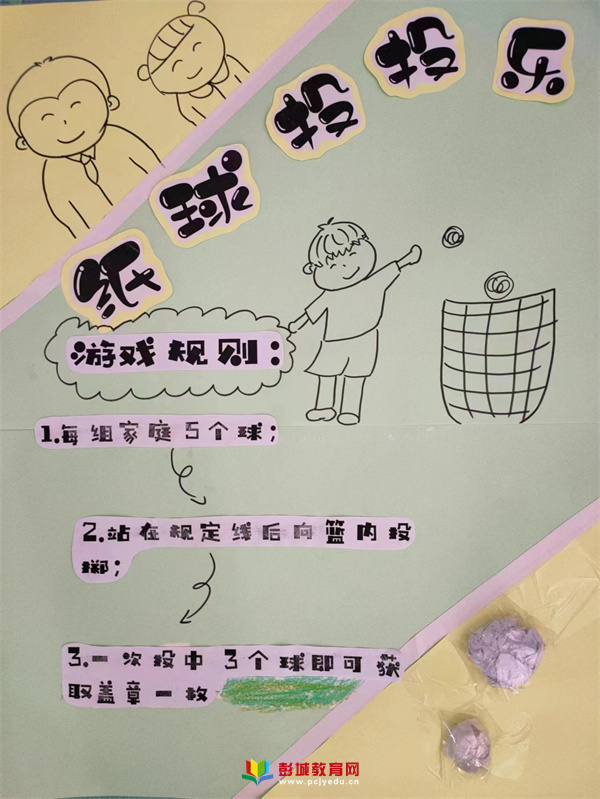 纸球投投乐
游戏规则：
1.每组家庭5个球；
2.站在规定线后向篮内投
掷；
3.一次投中3个球即可获
取盖章一枚
彭城教育网
www.pcjyedu.cn